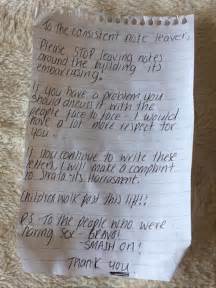 To the consistent note leaver,
Please STOP leaving notes
around the building its
embarrassing!
If you have a problem you
should discuss it with the
people face to face - I would
have a lot more respect for
you.
If you continue to write these
letters I will make a complaint
to Strata its Harassment.
Children walk past this lift!!
P.S. To the people who were
having Sex - BRAVO!
- SMASH ON!
Thank you